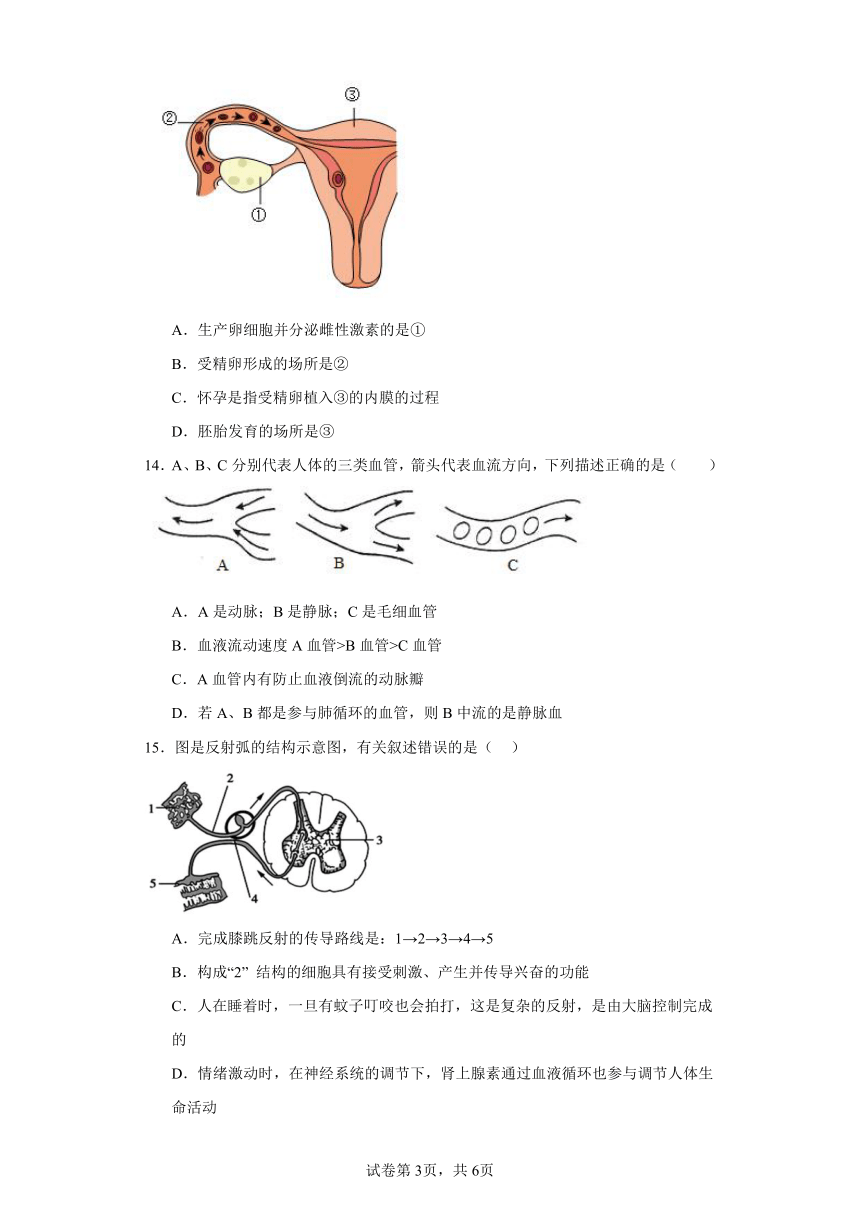 ③
②
①
A．生产卵细胞并分泌雌性激素的是①
B．受精卵形成的场所是②
C．怀孕是指受精卵植入③的内膜的过程
D．胚胎发育的场所是③
14．A、B、C 分别代表人体的三类血管，箭头代表血流方向，下列描述正确的是（　　）
A B C
A．A 是动脉；B 是静脉；C 是毛细血管
B．血液流动速度 A 血管>B 血管>C 血管
C．A 血管内有防止血液倒流的动脉瓣
D．若 A、B 都是参与肺循环的血管，则 B 中流的是静脉血
15．图是反射弧的结构示意图，有关叙述错误的是（　）
2
1
3
5
4
A．完成膝跳反射的传导路线是：1→2→3→4→5
B．构成“2” 结构的细胞具有接受刺激、产生并传导兴奋的功能
C．人在睡着时，一旦有蚊子叮咬也会拍打，这是复杂的反射，是由大脑控制完成
的
D．情绪激动时，在神经系统的调节下，肾上腺素通过血液循环也参与调节人体生
命活动
试卷第 3页，共 6页